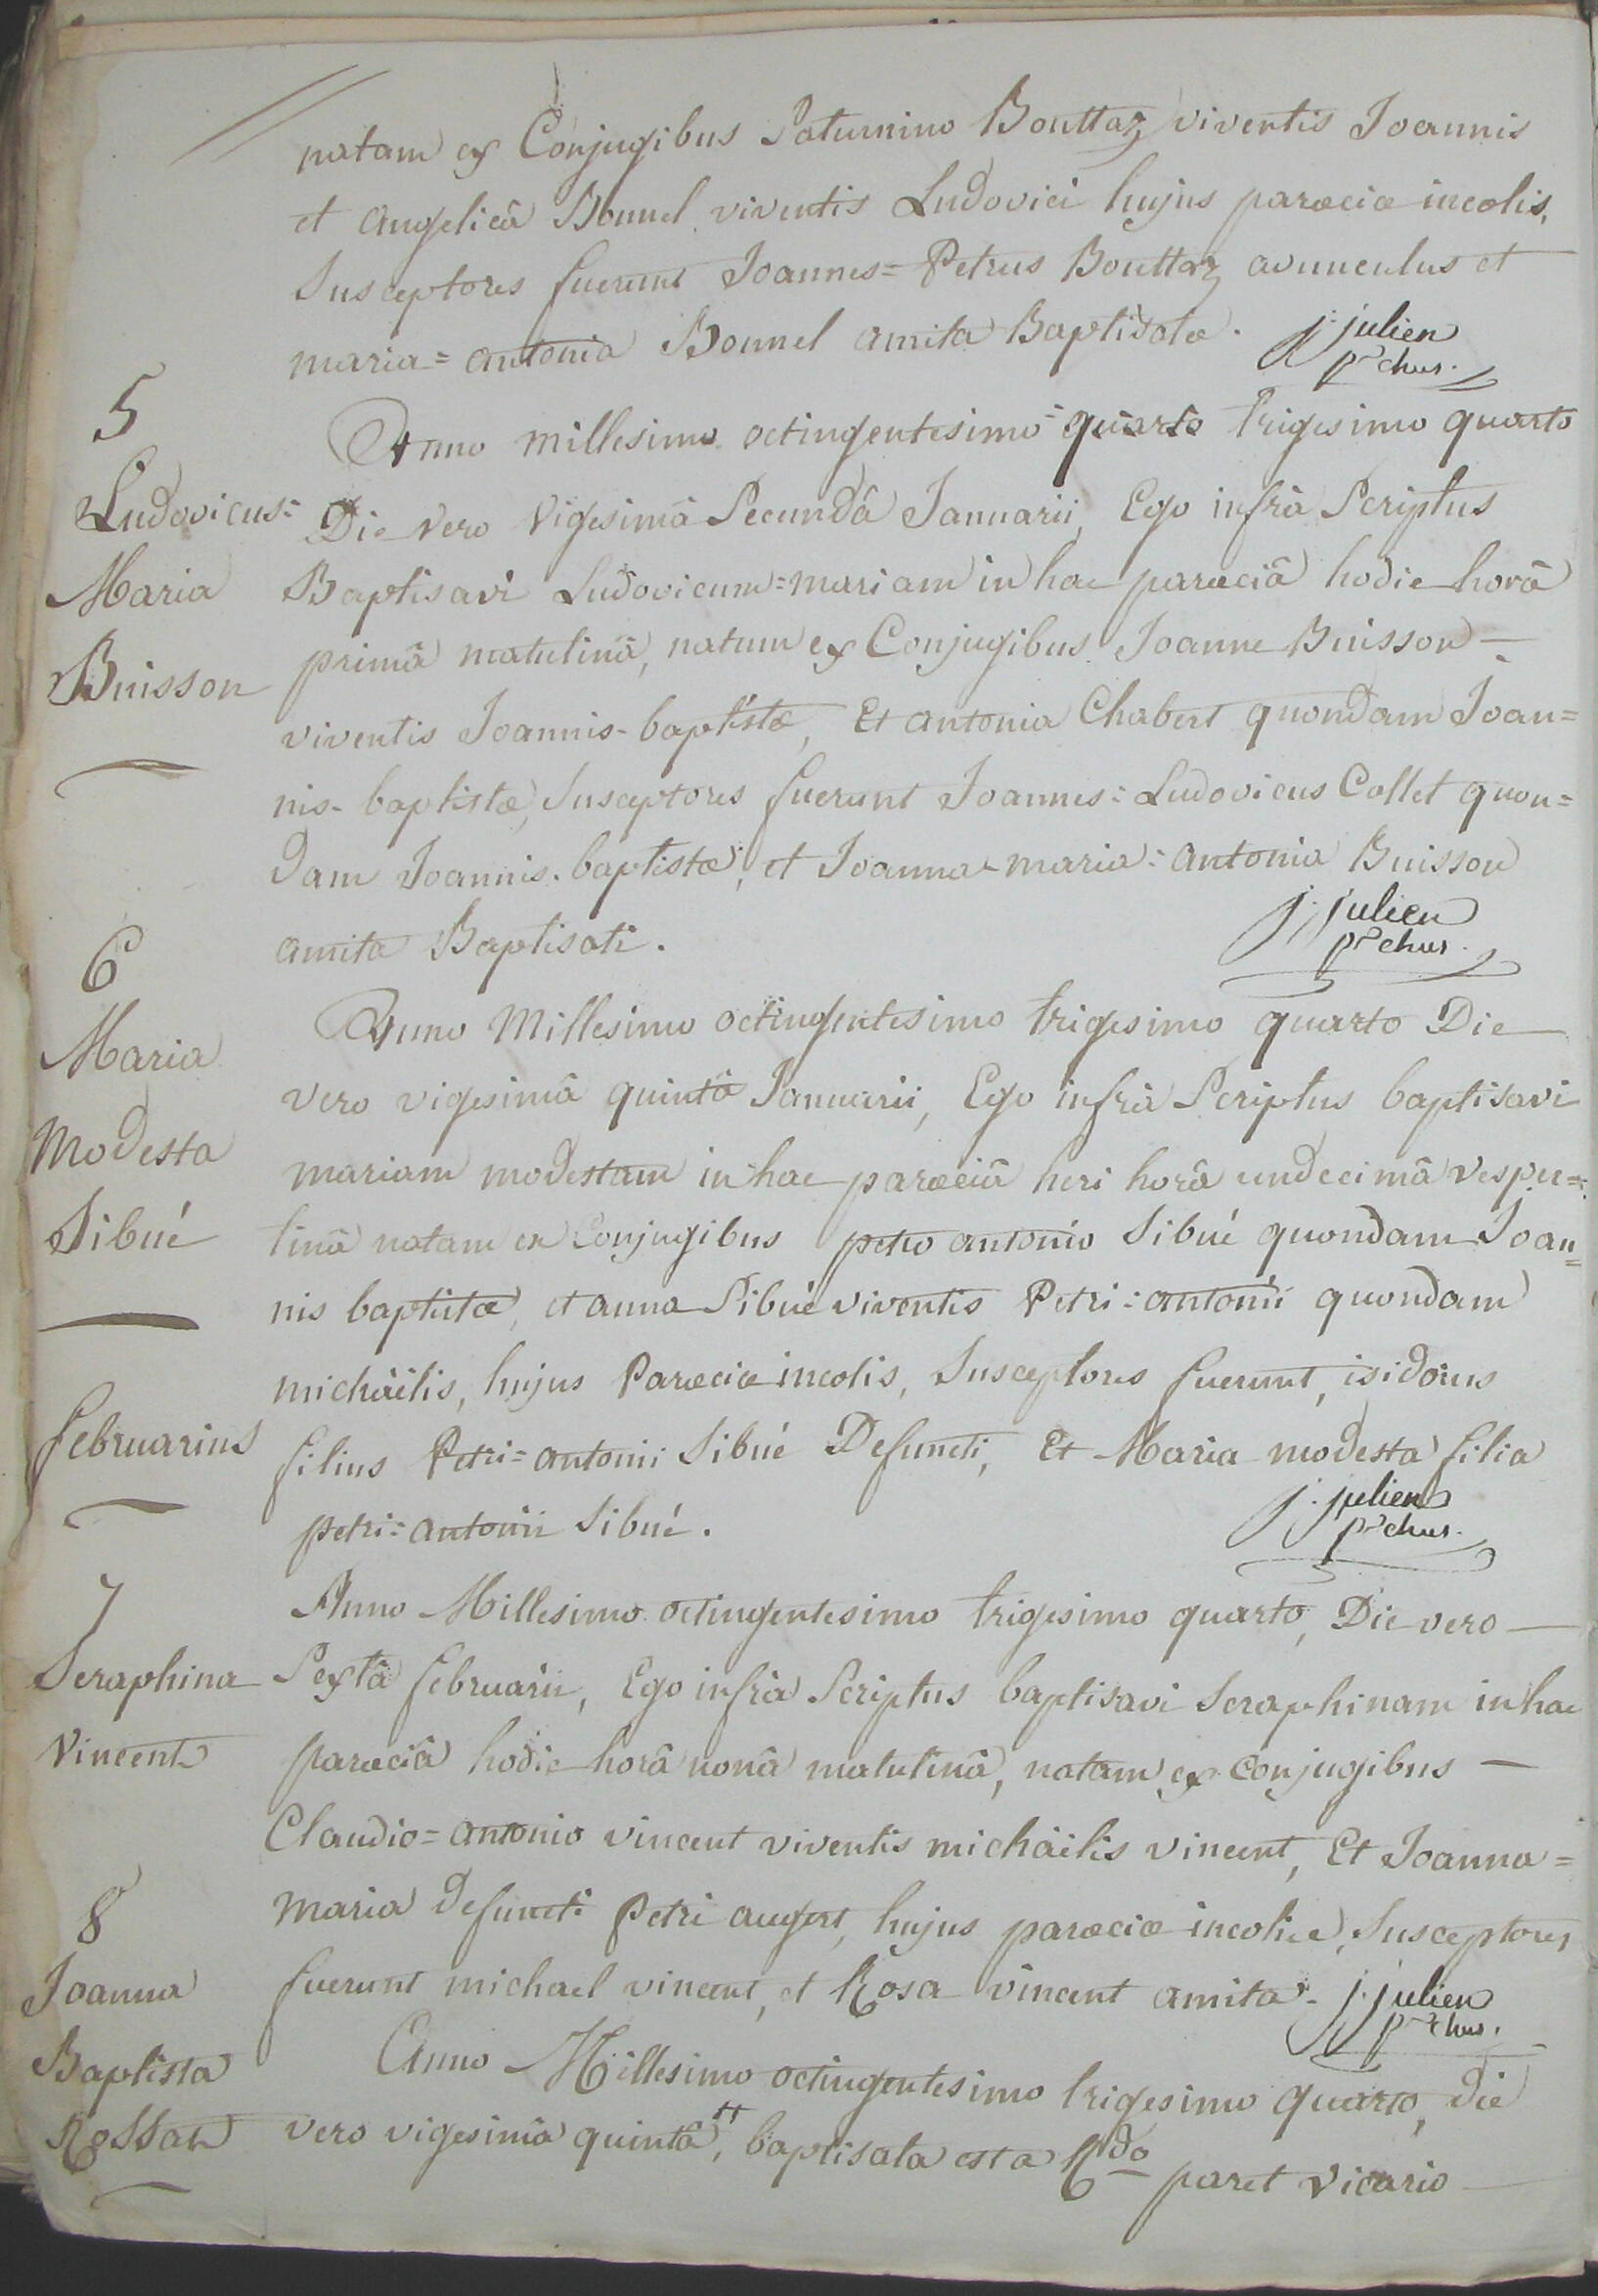 natam ex Conjugibus Saturnino Bouttaz viventis Joannis
et angelicâ Bonnel viventis Ludovici hujus parœciæ incolis,
Susceptores fuerunt Joannes=Petrus Bouttaz avunculus et
maria=antonia Bonnel amita Baptisatæ. j. julien
pr chus.
5
Ludovicus=
Maria
Buisson
Anno millesimo octingentesimo quarto trigesimo quarto
Die vero vigesimâ Secundâ Januarii, Ego infrà Scriptus
Baptisavi Ludovicum=mariam in hac parœciâ hodie horâ
primâ matutinâ, natum ex Conjugibus Joanne Buisson
viventis Joannis-baptistæ, Et antonia Chabert quondam Joan=
nis-baptistæ, Susceptores fuerunt Joannes=Ludovicus Collet quon=
dam Joannis-baptistæ, et Joanna-maria=antonia Buisson
amita Baptisati. j. julien
pr chus.
6
Maria
Modesta
Sibué
Anno Millesimo octingentesimo trigesimo quarto Die
vero vigesimâ quintâ Januarii, Ego infrà Scriptus baptisavi
mariam modestam in hac parœciâ heri horâ undecimâ vesper=
tinâ natam ex Conjugibus petro antonio Sibué quondam Joan=
nis baptistæ, et anna Sibué viventis Petri=antonii quondam
michäëlis, hujus Parœciæ incolis, Susceptores fuerunt, isidorus
filius Petri=antonii Sibué Defuncti, Et Maria modesta filia
petri=antonii Sibué. j. julien
pr chus.
februarius
7
Seraphina
Vincent
Anno Millesimo octingentesimo trigesimo quarto, Die vero
Sextâ februarii, Ego infrà Scriptus baptisavi Seraphinam in hac
parœciâ hodie horâ nonâ matutinâ, natam ex conjugibus
Claudio=antonio vincent viventis michäëlis vincent, Et Joanna=
maria defuncti Petri augert, hujus parœciæ incolis, Susceptores
fuerunt michael vincent, et Rosa vincent amita. j. julien
pr chus.
8
Joanna
Baptista
Rossat
Anno Millesimo octingentesimo trigesimo quarto, die
vero vigesimâ quintâ, baptisata est a Rdo paret vicario